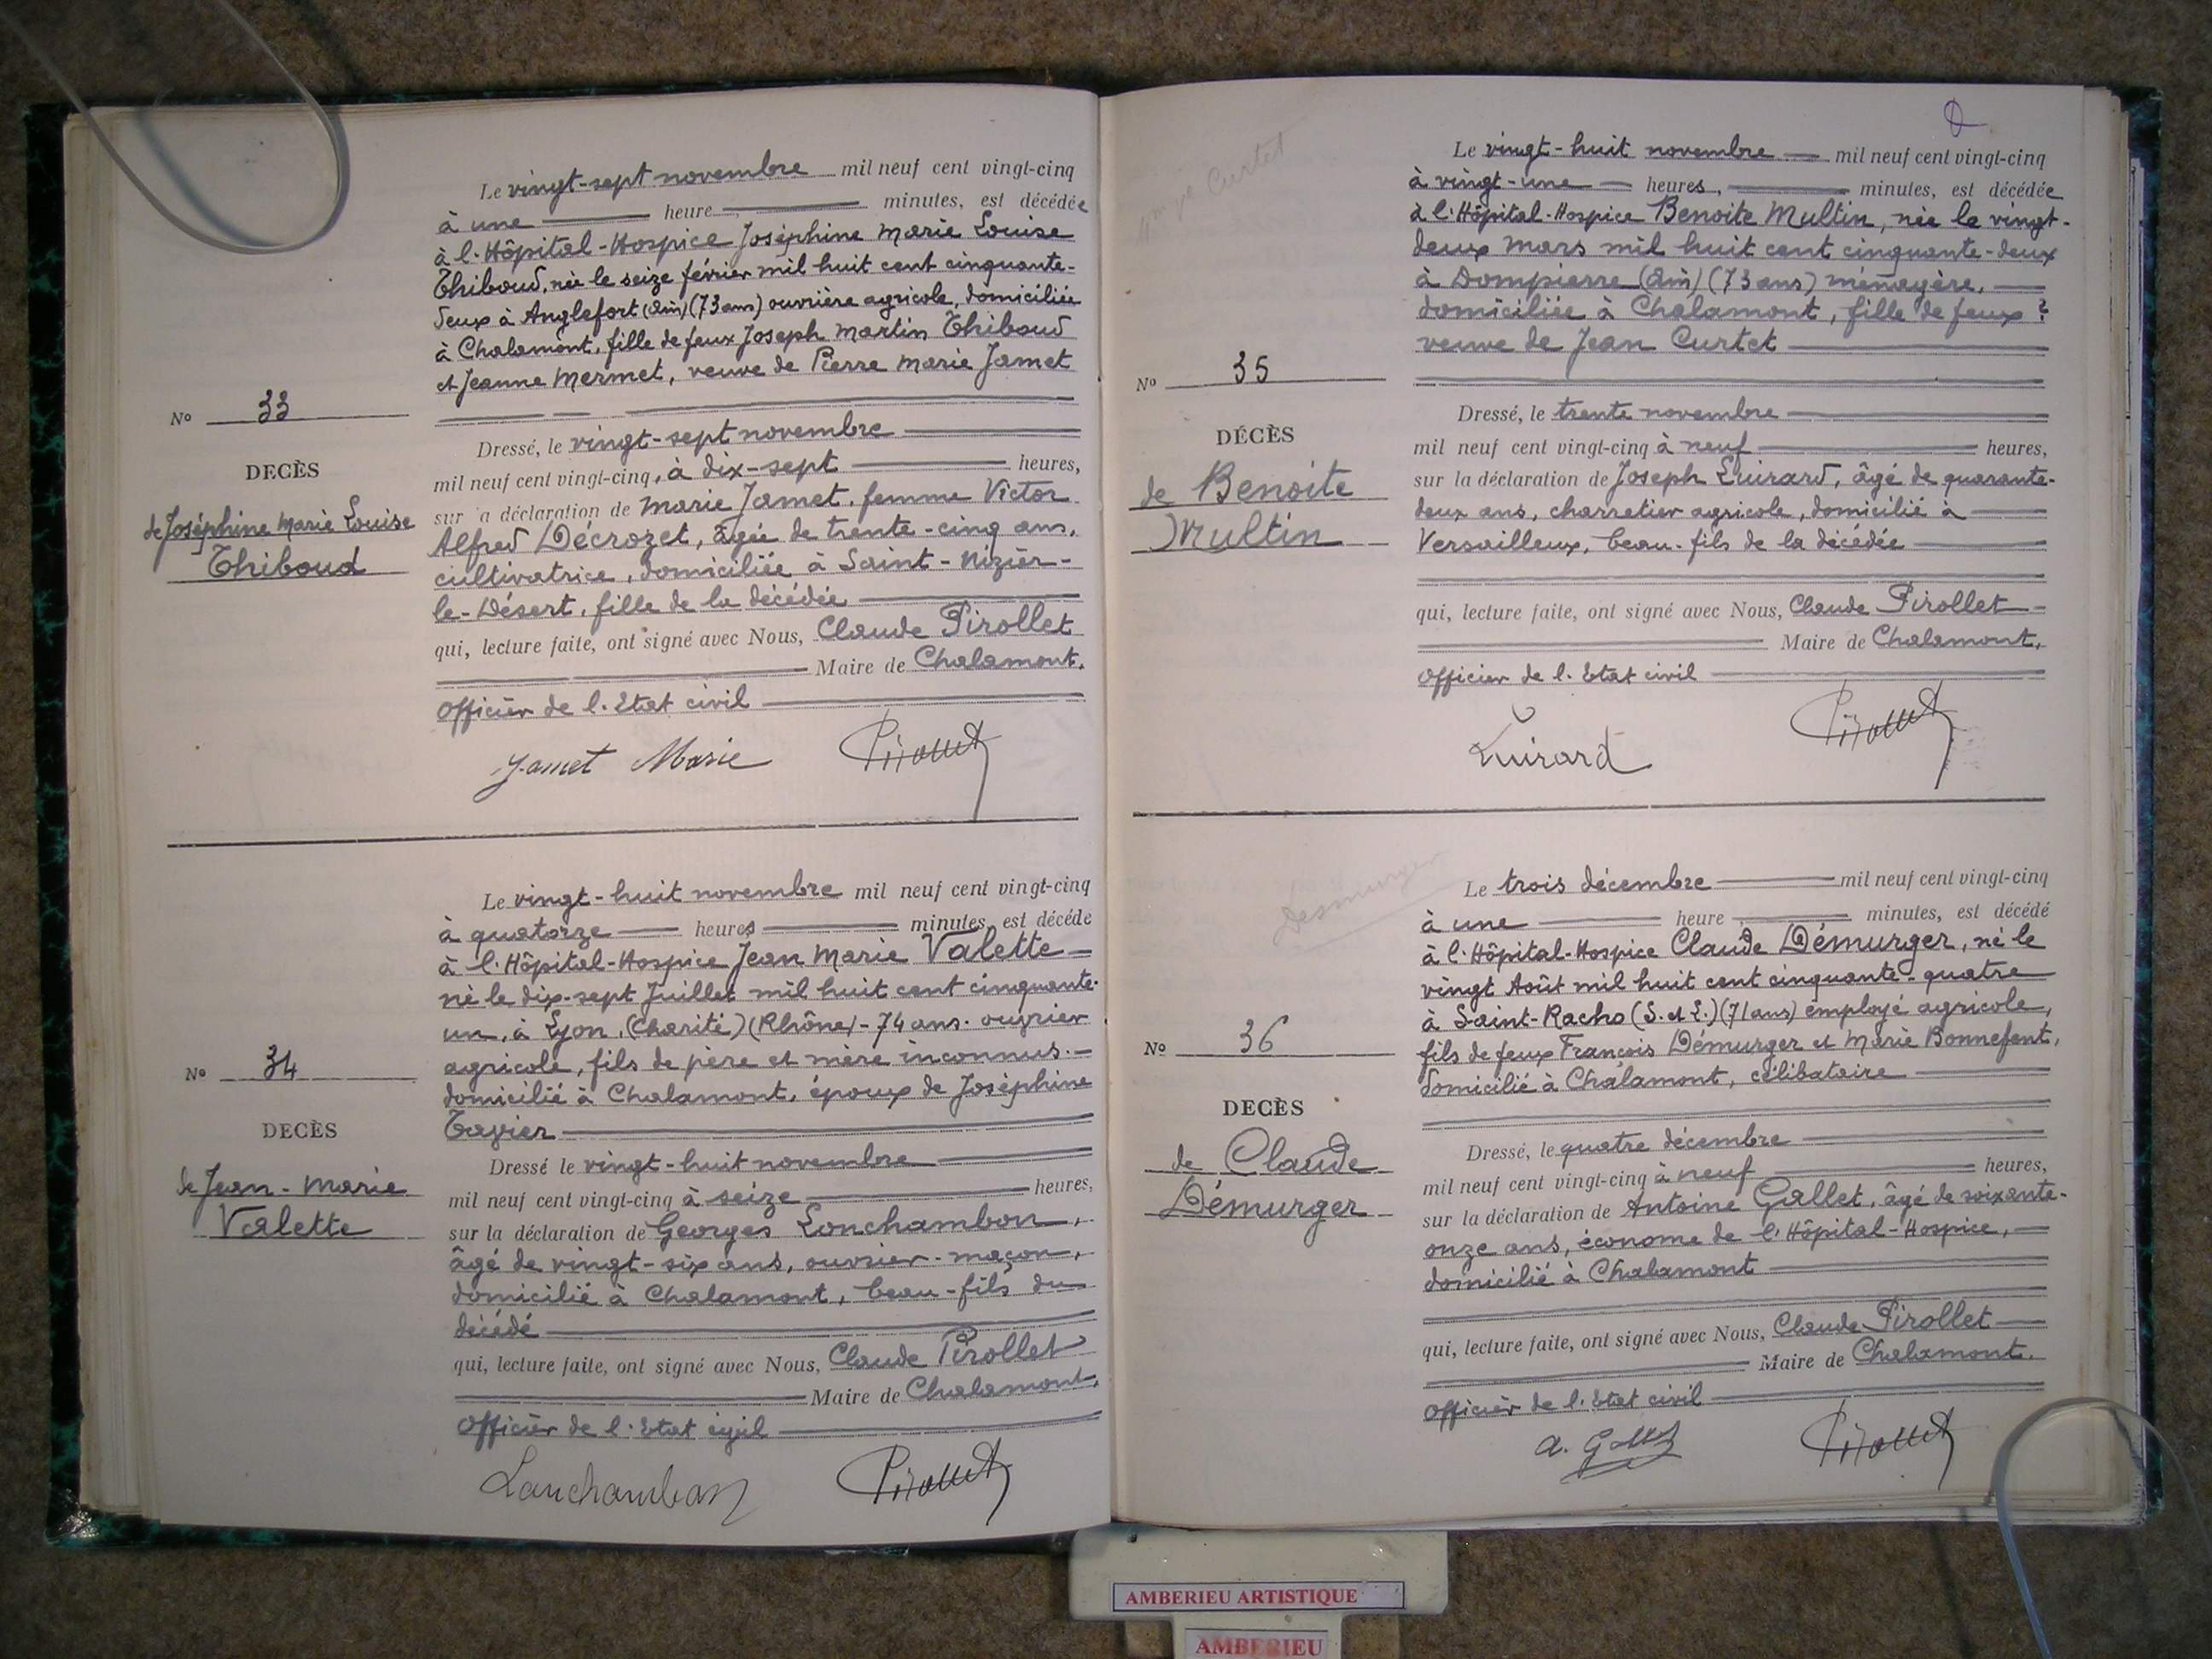 Le vingt-sept novembre mil neuf cent vingt-cinq
à une heure, minutes, est décédée
à l'Hôpital-Hospice Joséphine Marie Louise
Thiboud, née le seize février mil huit cent cinquante-
deux à Anglefort (Ain) (73 ans) ouvrière agricole, domiciliée
à Chalamont, fille de feux Joseph Martin Thiboud
et Jeanne Mermet, veuve de Pierre Marie Jamet
No 33
DECÈS
de Joséphine Marie Louise
Thiboud
Dressé, le vingt-sept novembre
mil neuf cent vingt-cinq, à dix-sept heures,
sur la déclaration de Marie Jamet, femme Victor
Alfred Décrozet, âgée de trente-cinq ans,
cultivatrice, domiciliée à Saint-Nizier-
le-Désert, fille de la décédée
qui, lecture faite, ont signé avec Nous, Claude Pirollet
Maire de Chalamont,
Officier de l'Etat civil
Jamet Marie Pirollet
Le vingt-huit novembre mil neuf cent vingt-cinq
à quatorze heures minutes, est décédé
à l'Hôpital-Hospice Jean Marie Valette
né le dix-sept Juillet mil huit cent cinquante-
un, à Lyon, (Charité) (Rhône) - 74 ans. ouvrier
agricole, fils de père et mère inconnus.
domicilié à Chalamont, époux de Joséphine
No 34
DECÈS
de Jean-Marie
Valette
Dressé le vingt-huit novembre
mil neuf cent vingt-cinq à seize heures,
sur la déclaration de Georges Lonchambon,
âgé de vingt-six ans, ouvrier-maçon,
domicilié à Chalamont, beau-fils du
décédé
qui, lecture faite, ont signé avec Nous, Claude Pirollet
Maire de Chalamont,
Officier de l'Etat civil
Lonchambon Pirollet
Curtet
Le vingt-huit novembre mil neuf cent vingt-cinq
à vingt-une heures, minutes, est décédée
à l'Hôpital-Hospice Benoite Multin, née le vingt-
deux Mars mil huit cent cinquante-deux
à Dompierre (Ain) (73 ans) ménagère,
domiciliée à Chalamont, fille de feux ?
veuve de Jean Curtet
No 35
DÉCÈS
de Benoite
Multin
Dressé, le trente novembre
mil neuf cent vingt-cinq à neuf heures,
sur la déclaration de Joseph Luirard, âgé de quarante-
deux ans, charretier agricole, domicilié à
Versailleux, beau-fils de la décédée
qui, lecture faite, ont signé avec Nous, Claude Pirollet
Maire de Chalamont,
Officier de l'Etat civil
Luirard Pirollet
Desmurger
Le trois décembre mil neuf cent vingt-cinq
à une heure minutes, est décédé
à l'Hôpital-Hospice Claude Démurger, né le
vingt Août mil huit cent cinquante-quatre
à Saint-Racho (S. et L.) (71 ans) employé agricole,
fils de feux François Démurger et Marie Bonnefent,
domicilié à Chalamont, célibataire
No 36
DECÈS
de Claude
Démurger
Dressé, le quatre décembre
mil neuf cent vingt-cinq à neuf heures,
sur la déclaration de Antoine Gallet, âgé de soixante-
onze ans, économe de l'Hôpital-Hospice,
domicilié à Chalamont
qui, lecture faite, ont signé avec Nous, Claude Pirollet
Maire de Chalamont.
Officier de l'Etat civil
Pirollet
AMBERIEU ARTISTIQUE
AMBERIEU